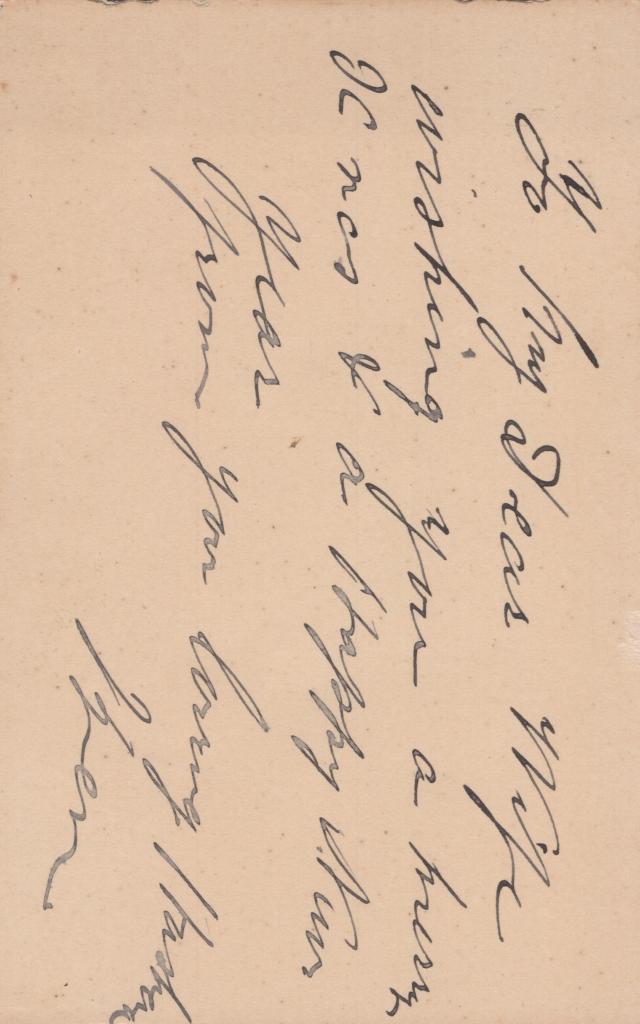 To my Dear Wife
wishing you a merry
Xmas & a happy New
Year
from your loving Husband